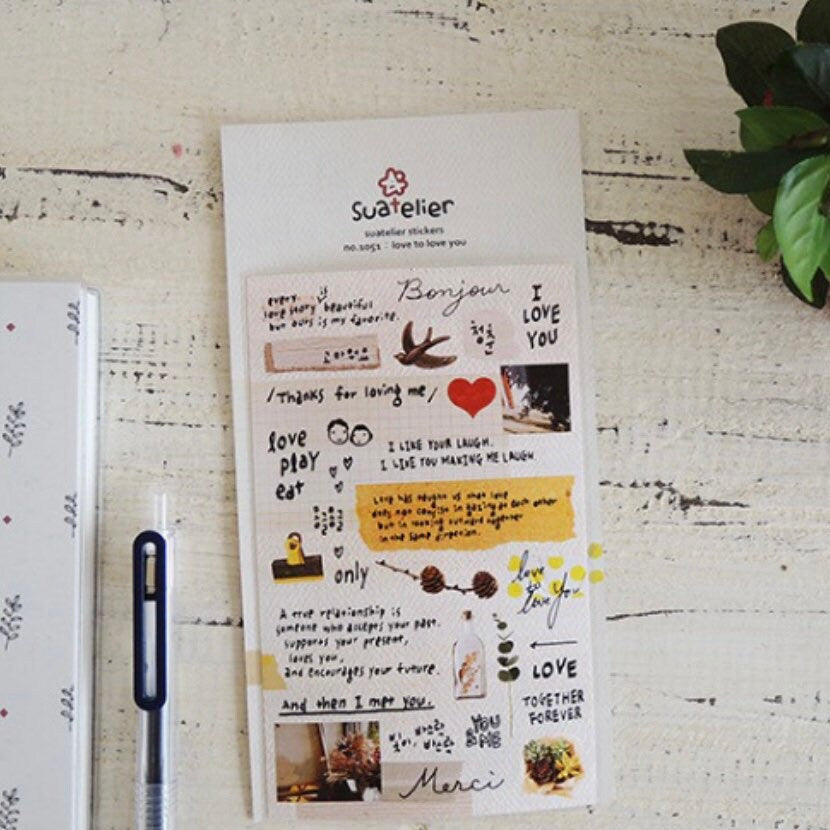 suatelier
suatelier stickers
no.1051 : love to love you
every is
love story beautiful
but ours is my favorite.
Bonjour
I
LOVE
YOU
고마워요
청춘
/Thanks for loving me/
love
play
eat
I LIKE YOUR LAUGH.
I LIKE YOU MAKING ME LAUGH
Love has taught us that love
does not consist in gazing at each other
but in looking outward together
in the same direction.
only
love
to
love you
A true relationship is
someone who accepts your past,
supports your present,
loves you,
and encourages your future.
And then I met you.
LOVE
TOGETHER
FOREVER
빛이, 바스락
바스락
YOU
&ME
Merci